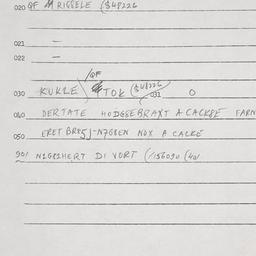 020 QF M RISSELE ($48226
021 —
022 —
030 KUKLE /QF TOK ($48226 031 O
040 DERTATE HODGSEBRAXT A CACKBE FARN
050 ERET BRX5J-N7GREN NOX A CALKE
901 N1GRIHERT DI VORT (/156090 (40/